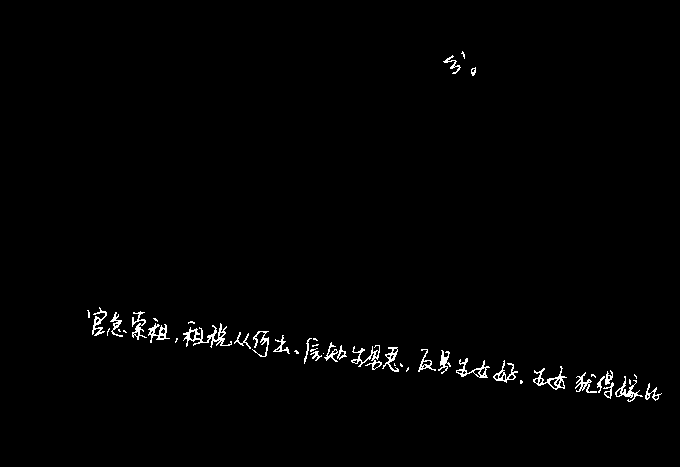 官急索租,租税从何出、信知生男恶,反是生女好.生女犹得嫁比